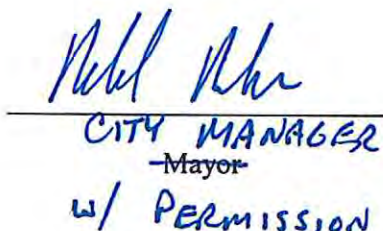 CITY MANAGER
Mayor
w/ PERMISSION